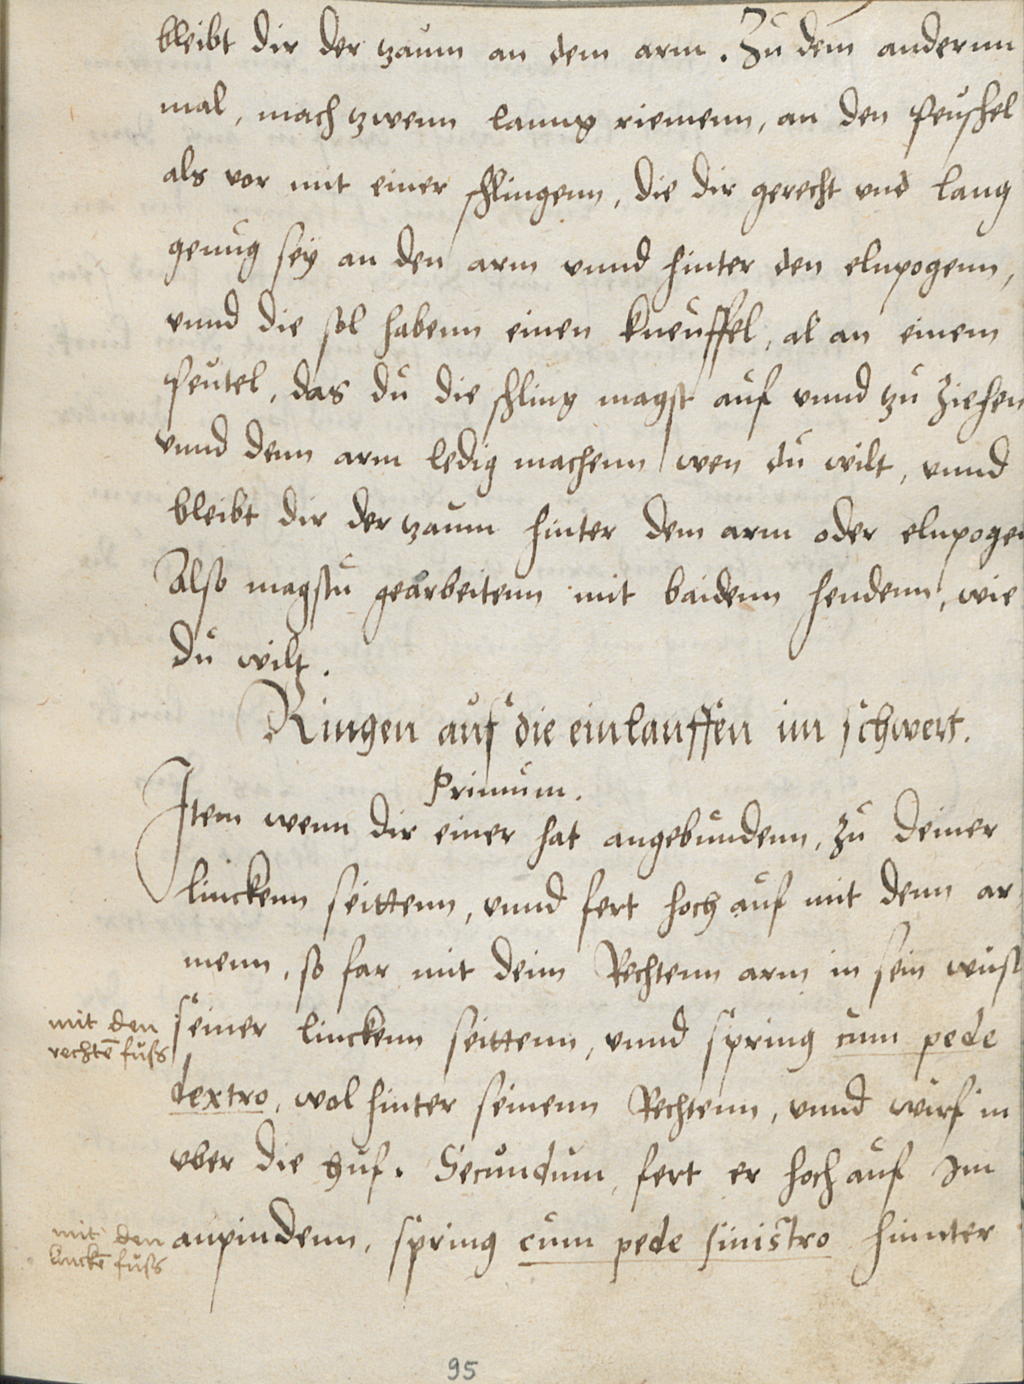 bleibt dir der zaum an dem arm. Zu dem andernn
mal, mach zwenn lanng riemenn, an den peuschel
als vor mit einer schlingenn, die dir gerecht vnd lang
genug sey an den arm vnnd hinter den elnpogenn,
vnnd die sol habenn einen kneuffel, al an einem
peutel, das du die schling magst auf vnnd zu ziehen
vnnd denn arm ledig machenn wen du wilt, vnnd
bleibt dir der zaum hinter dem arm oder elnpogen
Also magstu gearbeitenn mit baidenn hendenn, wie
du wilt.
Ringen auf die einlauffen im schwert.
Primum.
Item wenn dir einer hat angebundenn, zu deiner
linckenn seittenn, vnnd fert hoch auf mit denn ar
menn, so far mit deim Rechtenn arm in sein wüst
mit den
rechtē fuß
seiner linckenn seittenn, vnnd spring cum pede
dextro, wol hinter seinenn Rechtenn, vnnd wirf in
vber die huf. Secundum, fert er hoch auf Im
mit den
linckē fuß
anpindenn, spring cum pede sinistro hinnter
95